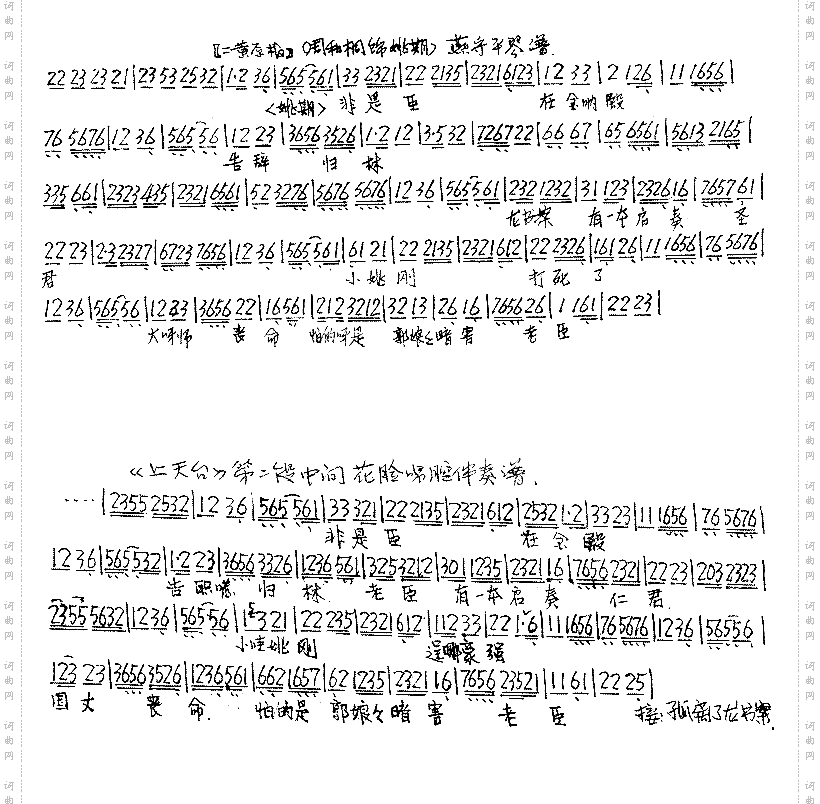 〖二黄原板〗〈周和桐饰姚期〉燕守平琴谱.
22 23 23 21|23 53 25 32|1·2 36|565 561|33 2321|22 2135|2321 6123|12 33|2 126|11 1656|
〈姚期〉非是臣 在金的殿
76 5676|12 36|565 56|12 23|3656 3526|1·2 12|3·5 32|7267 22|66 67|65 6561|5613 2165|
告辞 归林
335 661|2323 435|2321 6561|52 3276|5676 5676|12 36|565 561|232 1232|31 123|2326 16|7657 61|
龙书案 有一本启奏 圣
22 23|2·3 2327|6723 7656|12 36|565 561|61 21|22 2135|2321 612|22 2326|161 26|11 1656|76 5676|
君 小姚刚 打死了
12 36|565 56|12 33|3656 22|16 561|212 3212|32 13|26 16|7656 26|1 161|22 23|
太师 丧命 怕的呼是 郭娘々暗害 老臣
《上天台》第二段中间花脸唱腔伴奏谱.
····|2355 2532|12 36|565 561|33 321|22 2135|2321 612|2532 1·2|33 23|11 1656|76 5676|
非是臣 在金殿
12 36|565 532|1·2 23|3656 3326|1236 561|325 3212|301 1235|2321 16|7656 2321|22 23|203 2323|
告职 归林 老臣 有一本启奏 仁君.
2355 5632|12 36|565 56|13 21|22 235|2321 612|112 33|22 1·6|11 1656|76 5676|12 36|565 56|
小哇姚刚 逞哪豪强
123 23|3656 3526|1236 561|662 1657|62 1235|2321 16|7656 23521|11 61|22 25|
国丈 丧命. 怕的是 郭娘々暗害 老臣 接:孤窝了龙书案.
词曲网